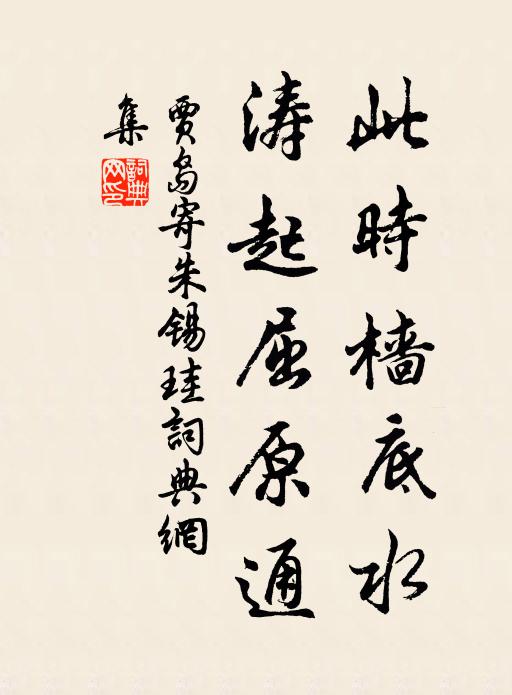 此時檣底水
濤起屈原通
賈島寄朱錫珪詞典網
集
詞典
网印